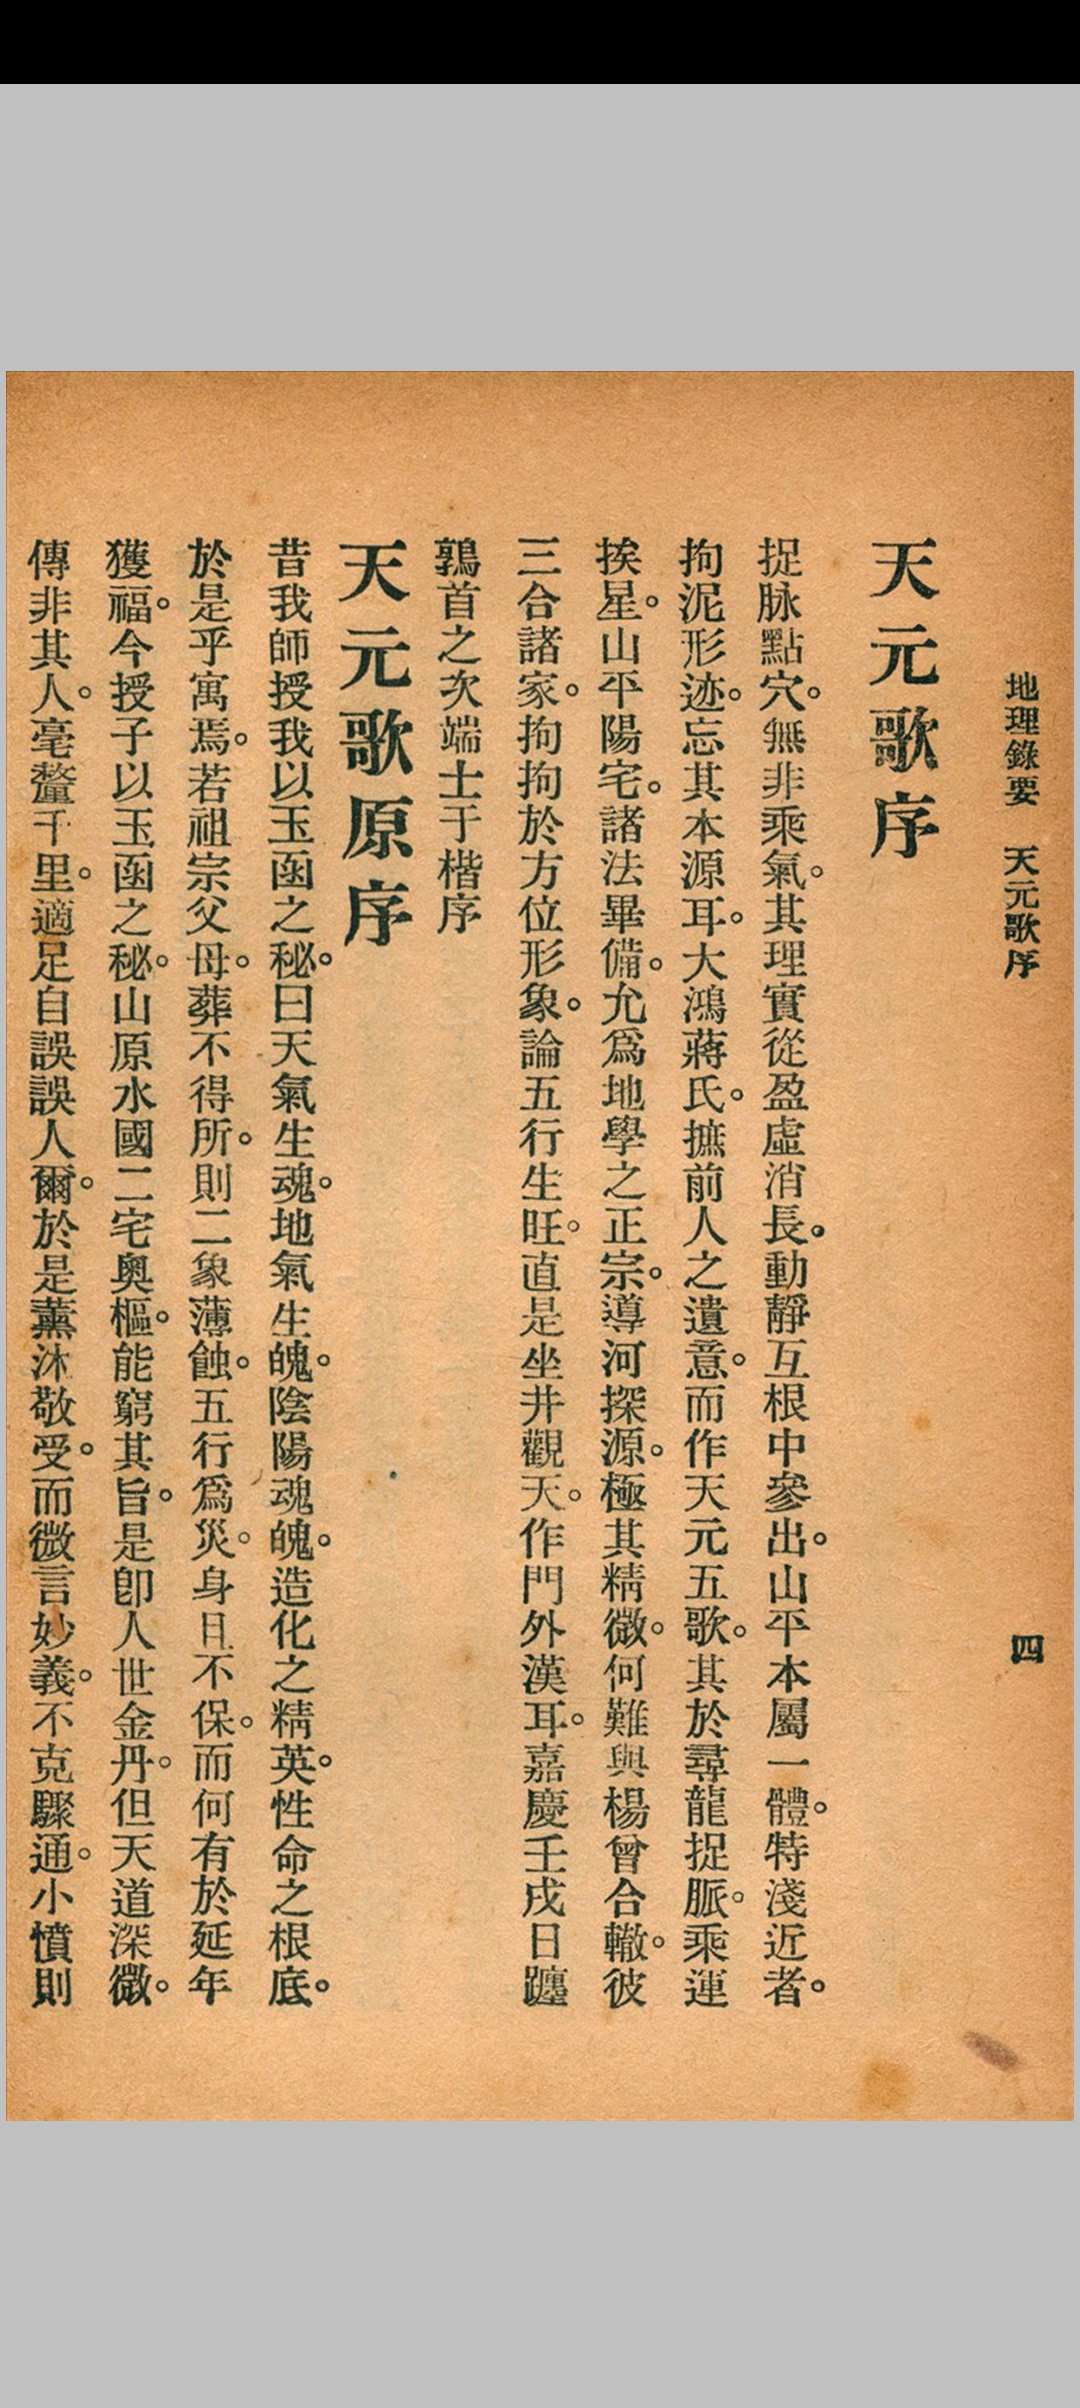 地理錄要　天元歌序　四
天元歌序
捉脉點穴。無非乘氣。其理實從盈虛消長。動靜互根中參出。山平本屬一體。特淺近者。
拘泥形迹。忘其本源耳。大鴻蔣氏。摭前人之遺意。而作天元五歌。其於尋龍捉脈。乘運
挨星。山平陽宅。諸法畢備。允爲地學之正宗。導河探源。極其精微。何難與楊曾合轍。彼
三合諸家。拘拘於方位形象。論五行生旺。直是坐井觀天。作門外漢耳。嘉慶壬戌日躔
鶉首之次端士于楷序
天元歌原序
昔我師授我以玉函之秘。曰天氣生魂。地氣生魄。陰陽魂魄。造化之精英。性命之根底。
於是乎寓焉。若祖宗父母。葬不得所。則二象薄蝕。五行爲災。身且不保。而何有於延年
獲福。今授子以玉函之秘。山原水國二宅奧樞。能窮其旨。是卽人世金丹。但天道深微。
傳非其人。毫釐千里。適足自誤誤人爾。於是薰沐敬受。而微言妙義。不克驟通。小憤則